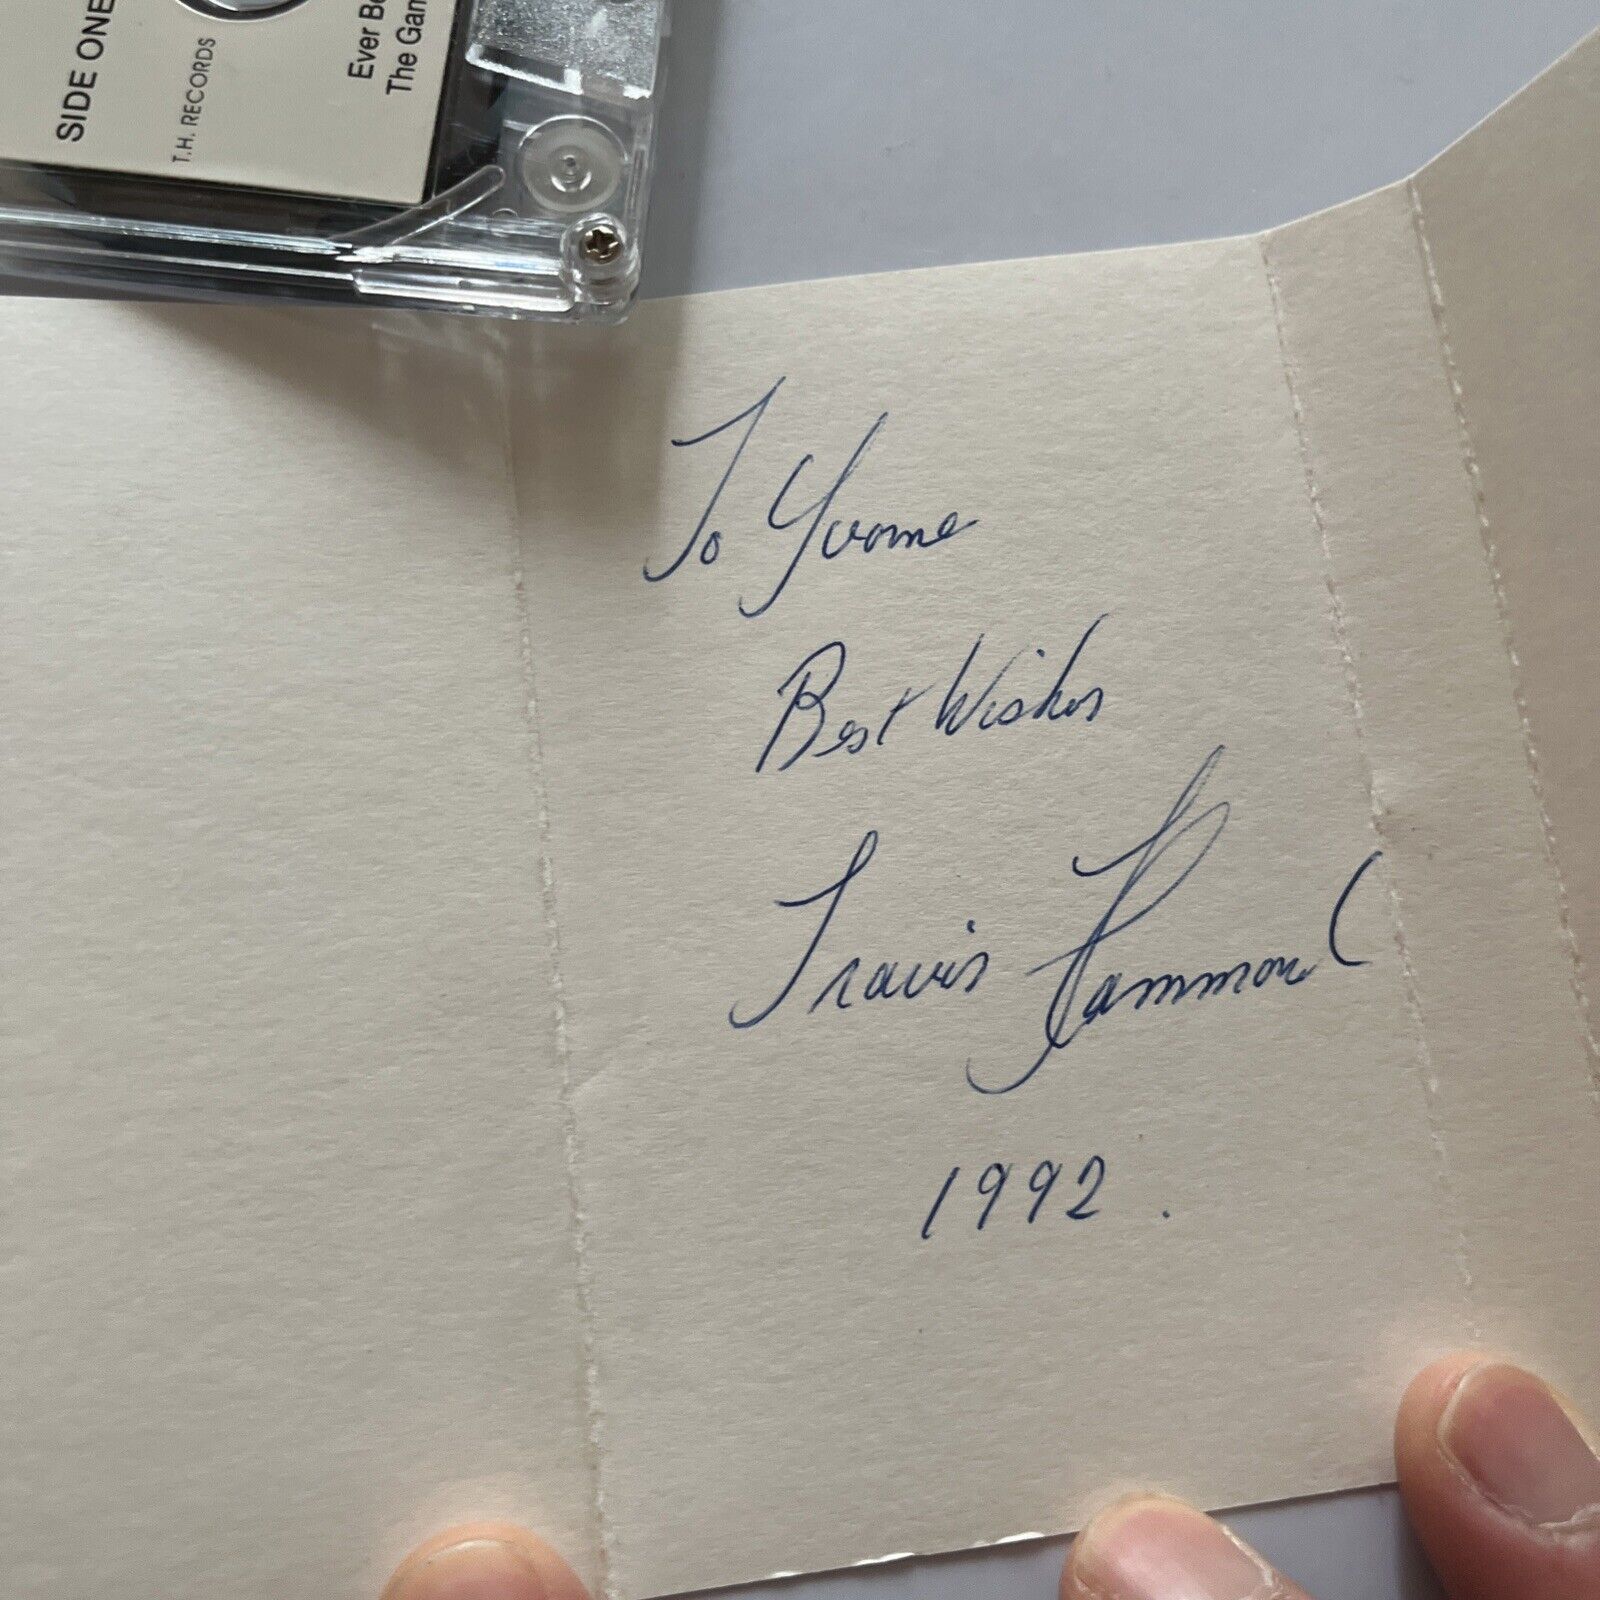 SIDE ONE
T.H. RECORDS
Ever
The
To Yvonne
Best Wishes
Travis Hammond
1992.